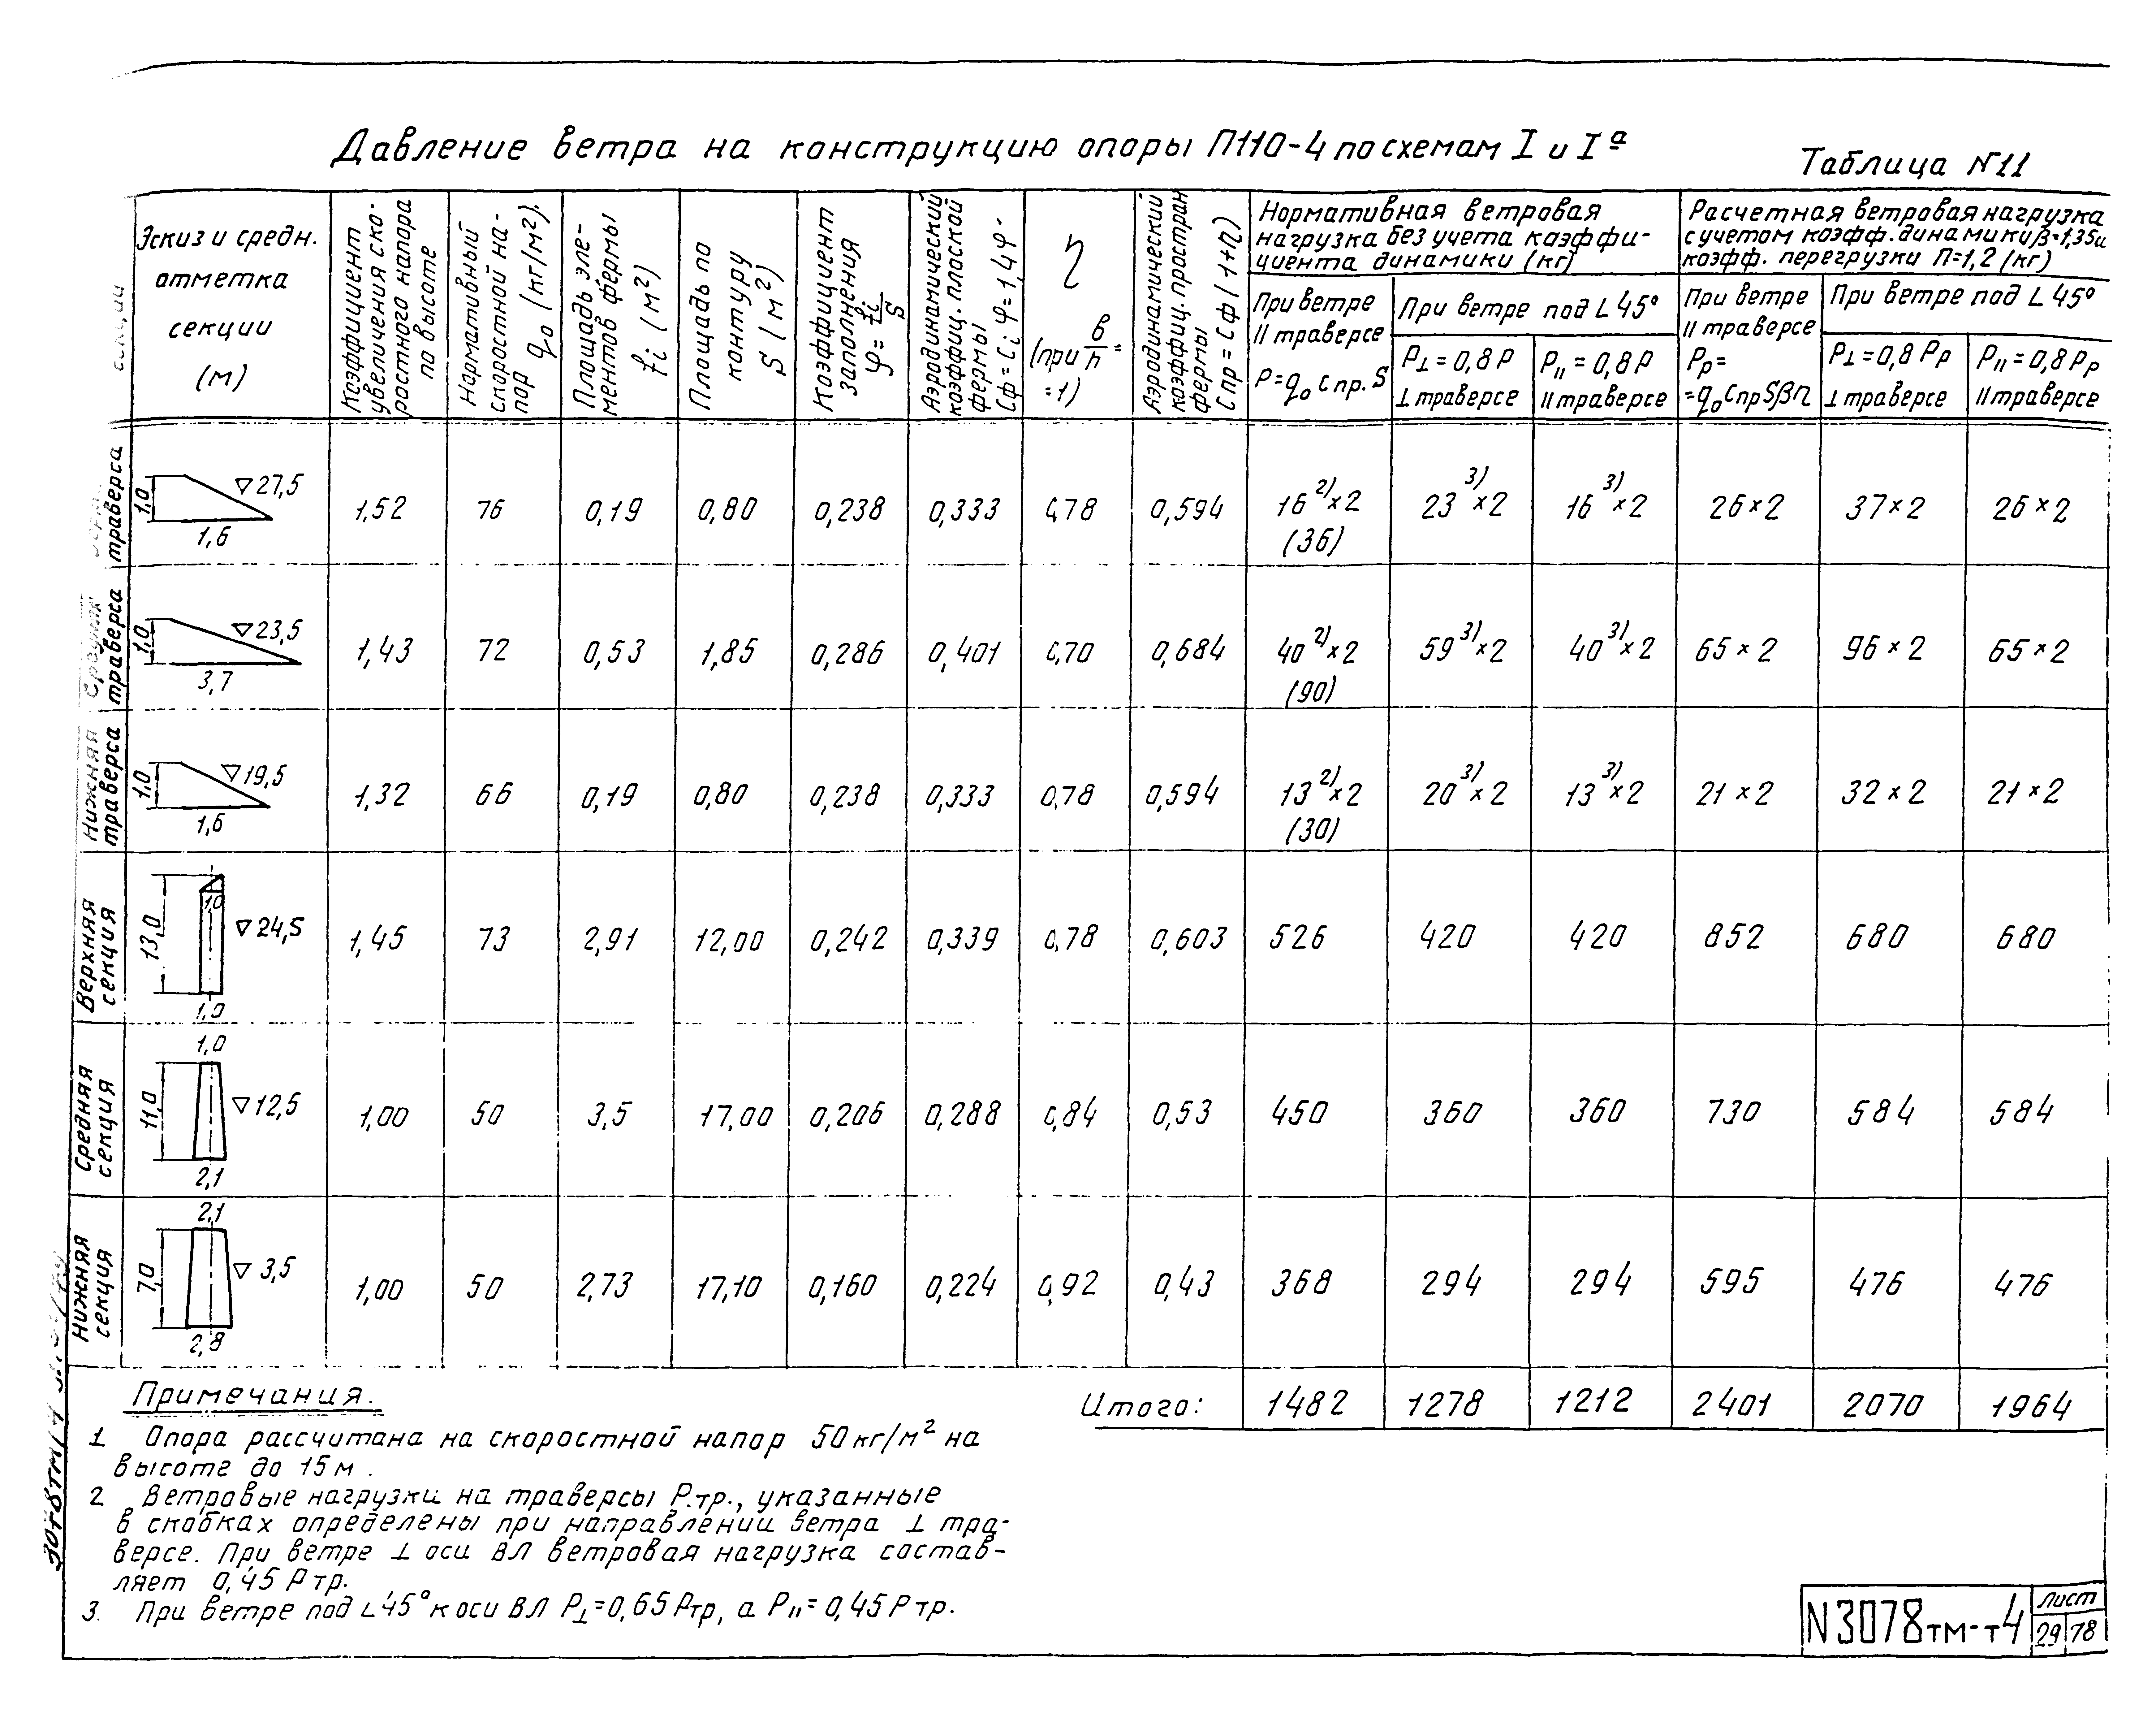 Давление ветра на конструкцию опоры П110-4 по схемам I и Iª
Таблица N11
секции
Эскиз и средн.
отметка
секции
(м)
Коэффициент
увеличения ско-
ростного напора
по высоте
Нормативный
скоростной на-
пор q₀ (кг/м²).
Площадь эле-
ментов фермы
fi (м²)
Площадь по
контуру
S (м²)
Коэффициент
заполнения
φ = fi/S
Аэродинамический
коэффиц. плоской
фермы
Сф = Ci φ = 1,4φ
η
(при в/h =
=1)
Аэродинамический
коэффиц. простран
фермы
Спр = Сф (1+η)
Нормативная ветровая
нагрузка без учета коэффи-
циента динамики (кг)
При ветре
II траверсе
P = q₀ Спр. S
При ветре под ∟ 45°
P⊥ = 0,8 P
⊥ траверсе
P॥ = 0,8 P
II траверсе
Расчетная ветровая нагрузка
с учетом коэфф. динамики β=1,35 и
коэфф. перегрузки П=1,2 (кг)
При ветре
II траверсе
Pр =
= q₀ Спр S β п
При ветре под ∟ 45°
P⊥ = 0,8 Pр
⊥ траверсе
P॥ = 0,8 Pр
II траверсе
траверса
1,0 ▽27,5 1,6
1,52 76 0,19 0,80 0,238 0,333 0,78 0,594 16²⁾×2 (36) 23³⁾×2 16³⁾×2 26×2 37×2 26×2
Средняя траверса
1,0 ▽23,5 3,7
1,43 72 0,53 1,85 0,286 0,401 0,70 0,684 40²⁾×2 (90) 59³⁾×2 40³⁾×2 65×2 96×2 65×2
Нижняя траверса
1,0 ▽19,5 1,6
1,32 66 0,19 0,80 0,238 0,333 0,78 0,594 13²⁾×2 (30) 20³⁾×2 13³⁾×2 21×2 32×2 21×2
Верхняя секция
13,0 1,0 ▽24,5 1,0
1,45 73 2,91 12,00 0,242 0,339 0,78 0,603 526 420 420 852 680 680
Средняя секция
1,0 11,0 ▽12,5 2,1
1,00 50 3,5 17,00 0,206 0,288 0,84 0,53 450 360 360 730 584 584
Нижняя секция
2,1 7,0 ▽3,5 2,8
1,00 50 2,73 17,10 0,160 0,224 0,92 0,43 368 294 294 595 476 476
Итого: 1482 1278 1212 2401 2070 1964
Примечания.
1 Опора рассчитана на скоростной напор 50 кг/м² на
высоте до 15 м.
2 Ветровые нагрузки на траверсы Р.тр., указанные
в скобках определены при направлении ветра ⊥ тра-
версе. При ветре ⊥ оси ВЛ ветровая нагрузка состав-
ляет 0,45 Р тр.
3. При ветре под ∟45° к оси ВЛ P⊥=0,65 Ртр, а P॥=0,45 Р тр.
N3078тм-т4
лист
29 78